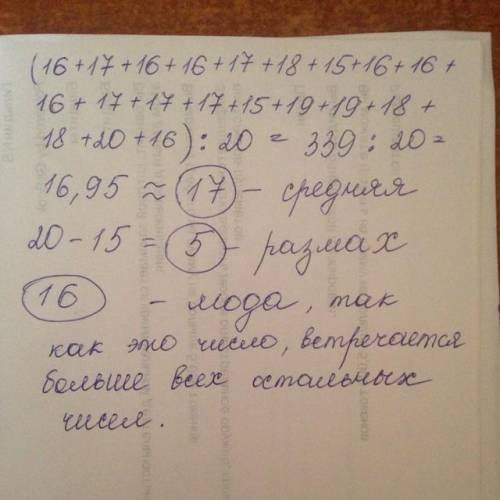 (16+17+16+16+17+18+15+16+16+
16+17+17+17+15+19+19+18+
18+20+16) : 20 = 339 : 20 =
16,95 ≈ 17 - средняя
20-15 = 5 - размах
16 - мода, так
как это число, встречается
больше всех остальных
чисел.